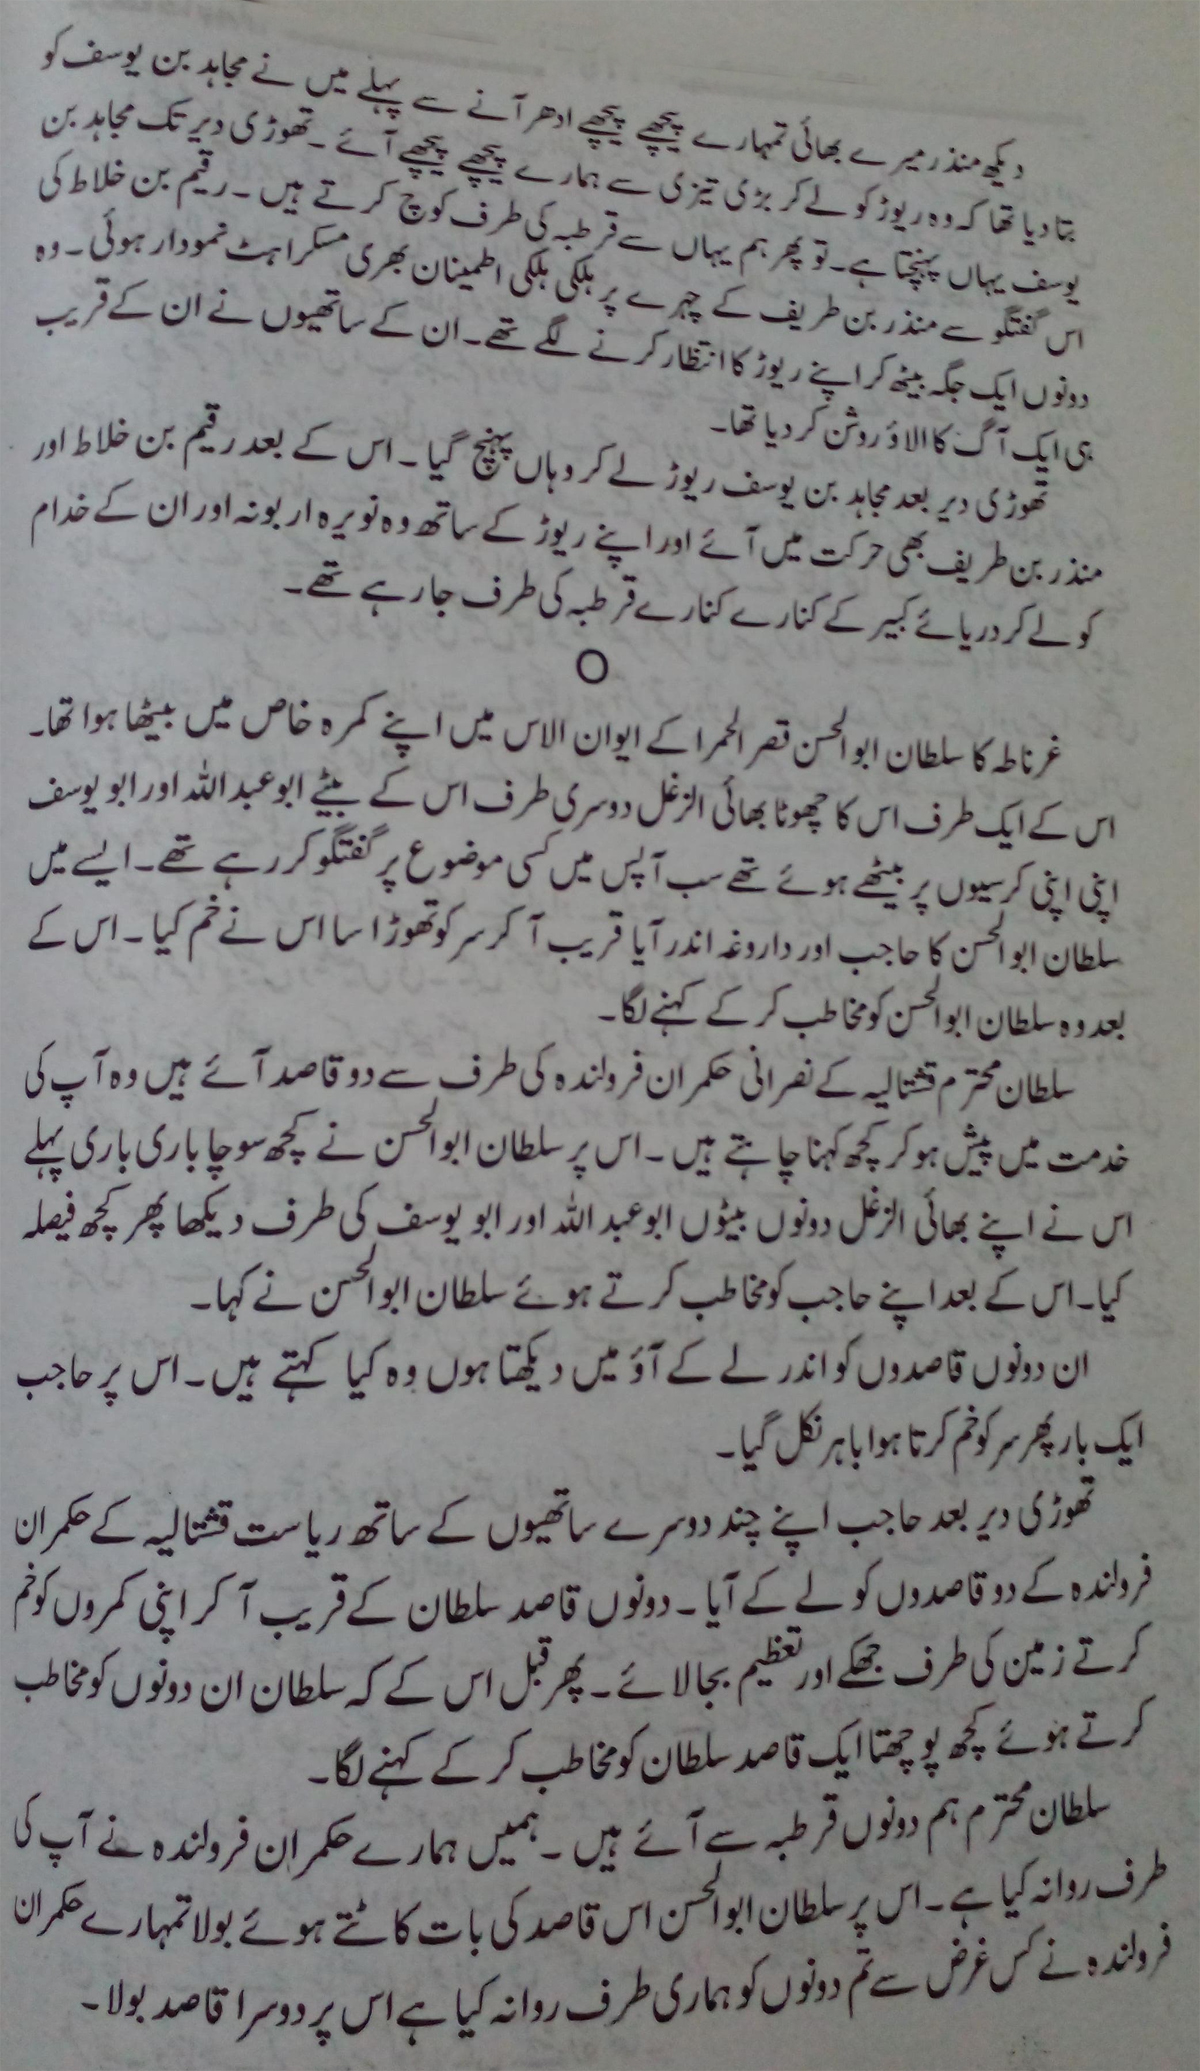 دیکھ منذر میرے بھائی تمہارے پیچھے پیچھے ادھر آنے سے پہلے میں نے مجاہد بن یوسف کو
بتا دیا تھا کہ وہ ریوڑ کو لے کر بڑی تیزی سے ہمارے پیچھے پیچھے آئے۔ تھوڑی دیر تک مجاہد بن
یوسف یہاں پہنچتا ہے۔ تو پھر ہم یہاں سے قرطبہ کی طرف کوچ کرتے ہیں۔ رقیم بن خلاط کی
اس گفتگو سے منذر بن طریف کے چہرے پر ہلکی ہلکی اطمینان بھری مسکراہٹ نمودار ہوئی۔ وہ
دونوں ایک جگہ بیٹھ کر اپنے ریوڑ کا انتظار کرنے لگے تھے۔ ان کے ساتھیوں نے ان کے قریب
ہی ایک آگ کا الاؤ روشن کر دیا تھا۔
تھوڑی دیر بعد مجاہد بن یوسف ریوڑ لے کر وہاں پہنچ گیا۔ اس کے بعد رقیم بن خلاط اور
منذر بن طریف بھی حرکت میں آئے اور اپنے ریوڑ کے ساتھ وہ نویرہ اربونہ اور ان کے خدام
کو لے کر دریائے کبیر کے کنارے کنارے قرطبہ کی طرف جا رہے تھے۔
O
غرناطہ کا سلطان ابوالحسن قصر الحمرا کے ایوان الاس میں اپنے کمرہ خاص میں بیٹھا ہوا تھا۔
اس کے ایک طرف اس کا چھوٹا بھائی الزغل دوسری طرف اس کے بیٹے ابو عبد اللہ اور ابو یوسف
اپنی اپنی کرسیوں پر بیٹھے ہوئے تھے سب آپس میں کسی موضوع پر گفتگو کر رہے تھے۔ ایسے میں
سلطان ابوالحسن کا حاجب اور داروغہ اندر آیا قریب آ کر سر کو تھوڑا سا اس نے خم کیا۔ اس کے
بعد وہ سلطان ابوالحسن کو مخاطب کر کے کہنے لگا۔
سلطان محترم قشتالیہ کے نصرانی حکمران فرولندہ کی طرف سے دو قاصد آئے ہیں وہ آپ کی
خدمت میں پیش ہو کر کچھ کہنا چاہتے ہیں۔ اس پر سلطان ابوالحسن نے کچھ سوچا باری باری پہلے
اس نے اپنے بھائی الزغل دونوں بیٹوں ابو عبد اللہ اور ابو یوسف کی طرف دیکھا پھر کچھ فیصلہ
کیا۔ اس کے بعد اپنے حاجب کو مخاطب کرتے ہوئے سلطان ابوالحسن نے کہا۔
ان دونوں قاصدوں کو اندر لے کے آؤ میں دیکھتا ہوں وہ کیا کہتے ہیں۔ اس پر حاجب
ایک بار پھر سر کو خم کرتا ہوا باہر نکل گیا۔
تھوڑی دیر بعد حاجب اپنے چند دوسرے ساتھیوں کے ساتھ ریاست قشتالیہ کے حکمران
فرولندہ کے دو قاصدوں کو لے کے آیا۔ دونوں قاصد سلطان کے قریب آ کر اپنی کمروں کو خم
کرتے زمین کی طرف جھکے اور تعظیم بجا لائے۔ پھر قبل اس کے کہ سلطان ان دونوں کو مخاطب
کرتے ہوئے کچھ پوچھتا ایک قاصد سلطان کو مخاطب کر کے کہنے لگا۔
سلطان محترم ہم دونوں قرطبہ سے آئے ہیں۔ ہمیں ہمارے حکمران فرولندہ نے آپ کی
طرف روانہ کیا ہے۔ اس پر سلطان ابوالحسن اس قاصد کی بات کاٹتے ہوئے بولا تمہارے حکمران
فرولندہ نے کس غرض سے تم دونوں کو ہماری طرف روانہ کیا ہے اس پر دوسرا قاصد بولا۔